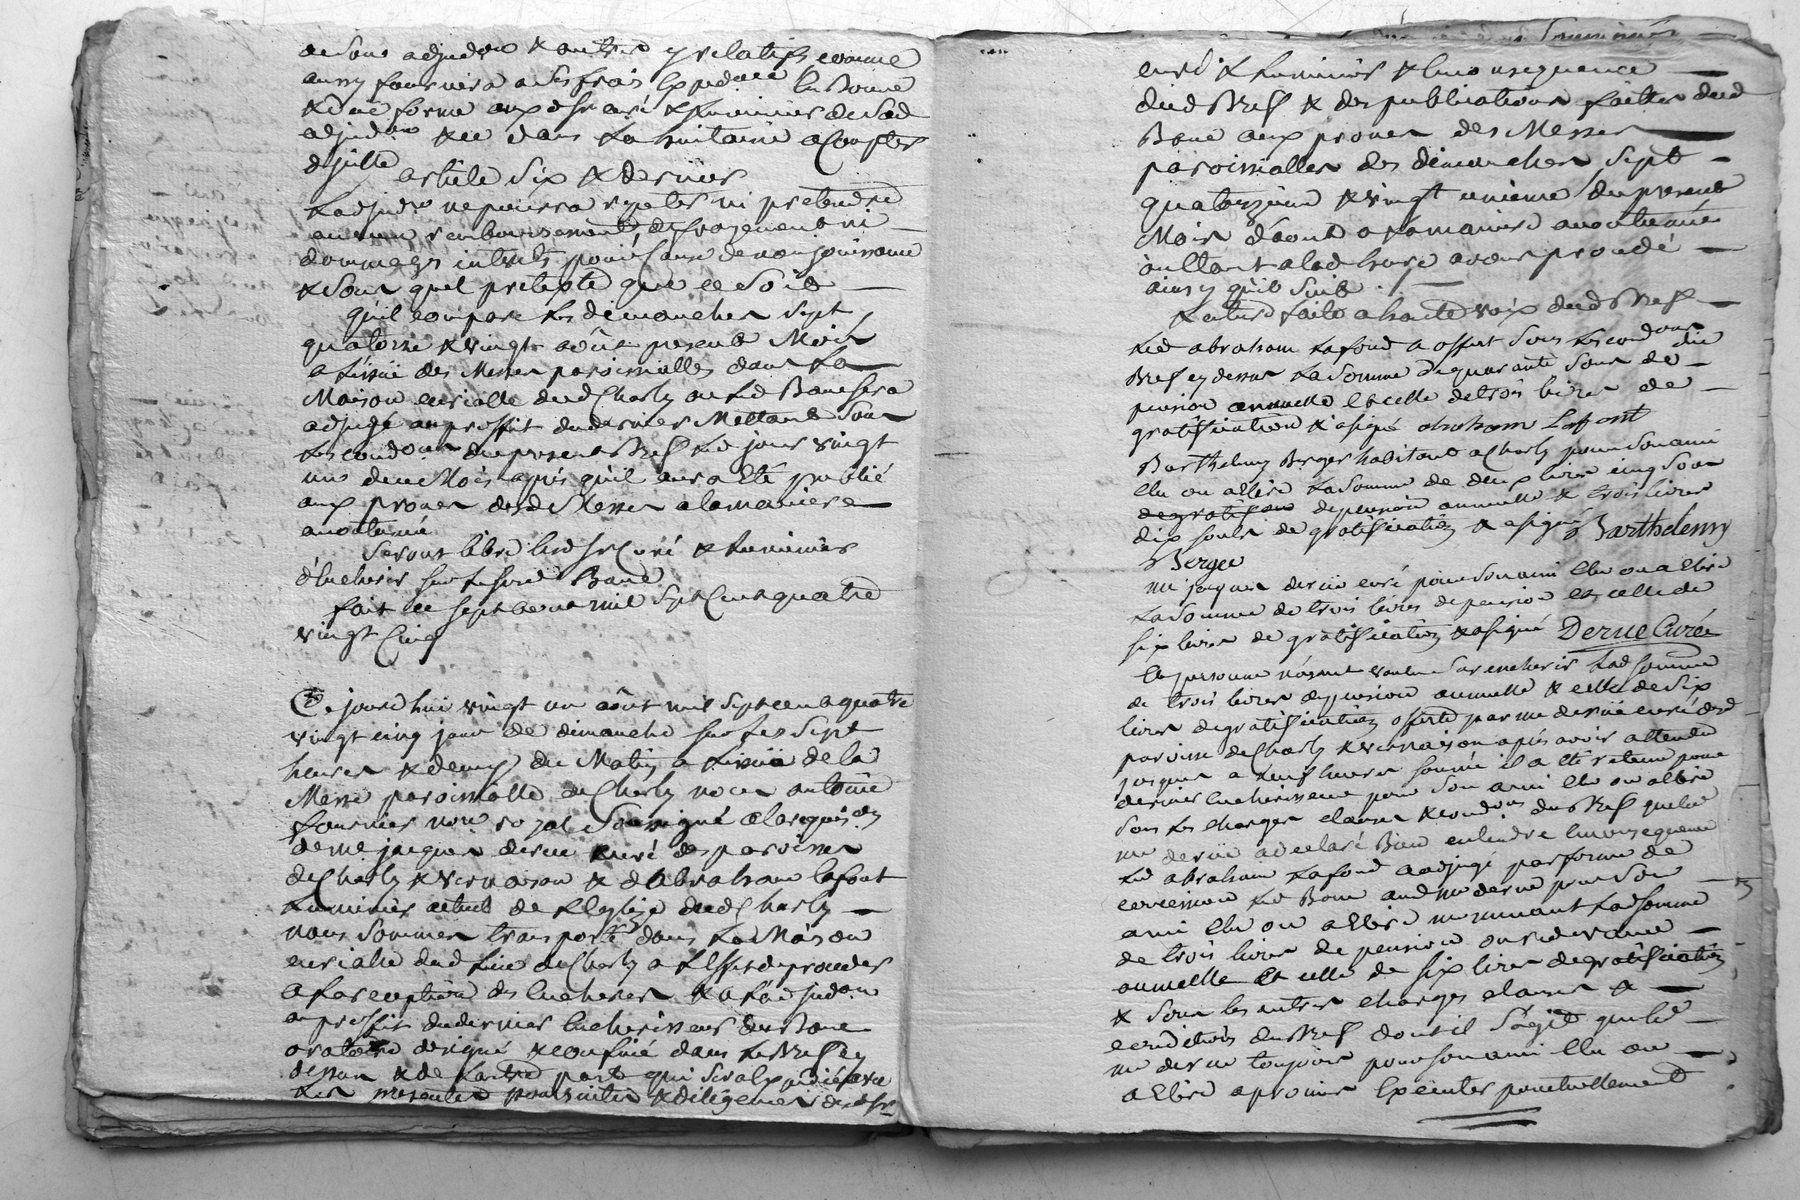 de son adjudon & autres y relatifs comme
aussy fournira a ses frais Expedon En bonne
& due forme aux dsrs curé & luminier de lad
adjudon & ce dans la huitaine a Compter
d'jcelle
article six & dernier
Ladjudre ne pourra repeter ni pretendre
aucun remboursement dégrayement ni
dommages interets pour Cause de non jouissance
& sous quel pretexte que ce soit
qu'il compare les dimanches sept
quatorze & vingt un août present Mois
a L'issüe des Messes paroissialles dans La
Maison curialle dud Charly ou Led Banc sera
adjugé au proffit du dernier Mettant sous
Les condons du present Bref Led jour vingt
un dece Mois après qu'il aura Eté publié
aux prones desd Messes a la maniere
accoutumée
seront libre lesd srs Curé & Luminier
d'Encherir sur Le susd Banc
fait ce sept aout mil sept Cent quatre
vingt Cinq
Ce jourdhui vingt un août mil sept cent quatre
vingt cinq jour de dimanche sur Les sept
heures & demy du Matin a L'issüe de la
Messe paroissialle de Charly nous antoine
fournier nore royal Soussigné a la requisiton
de me jacques derue curé des paroisses
de Charly & vernaison & d'abraham lafont
Luminier actuel de L'Eglize dud Charly
nous sommes transporté dans La Maison
curialle dud Lieu de Charly a L'Effet de proceder
a La reception des Encheres & a L'adjudon
au proffit du dernier Encherisseur du Banc
oratoire designé & confiné dans Le Bref cy
dessus & de L'autre part qui sera Expedié avec
Les presentes poursuites & diligences desd srs
curé & Luminier & En consequence
dud Bref & des publications faittes dud
Banc aux prones des Messes
paroissialles des dimanches sept
quatorzieme & vingt unieme du present
Mois d'aout a la maniere accoutumée
ainsy qu'il suit
Lecture faite a haute voix dud Bref
Led abraham Lafond a offert sous Les condons du
Bref cy dessus La somme de quarante sous de
pension annuelle Et celle de trois livres de
gratification & a signé abraham Lafont
Barthelemy Berger habitant a Charly pour son ami
Elu ou a Elire La somme de deux livres cinq sous
de pension annuelle & trois livres
dix souls de gratification & a signé Barthelemy
Berger
me jacques derüe curé pour son ami Elu ou a Elire
La somme de trois livres de pension et celle de
six livres de gratification & a signé Derue Curé
Et personne n'ayant voulu surencherir Lad somme
de trois livres de pension annuelle & celle de six
livres de gratification offerte par me derüe curé desd
paroisse de Charly & vernaison après avoir attendu
jusques a neuf heures sonnée il a Eté retenu pour
dernier Encherisseur pour son ami Elu ou a Elire
sous Les charges clauses & condons du Bref que led
me derüe a declaré Bien entendre En consequence
Led abraham Lafond a adjugé par forme de
concession Led Banc aud me derue pour son
ami Elu ou a Elire moyennant Lad somme
de trois livres de pension ou redevance
annuelle Et celle de six livres de gratification
& sous les autres charges clauses &
conditions du Bref dont il s'agit que led
me derue toujours pour son ami Elu ou
a Elire a promis Executer ponctuellement